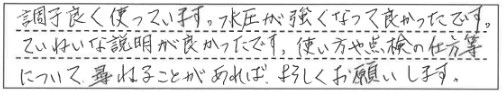 調子良く使っています。水圧が強くなって良かったです。
ていねいな説明が良かったです。使い方や点検の仕方等
について尋ねることがあれば、よろしくお願いします。